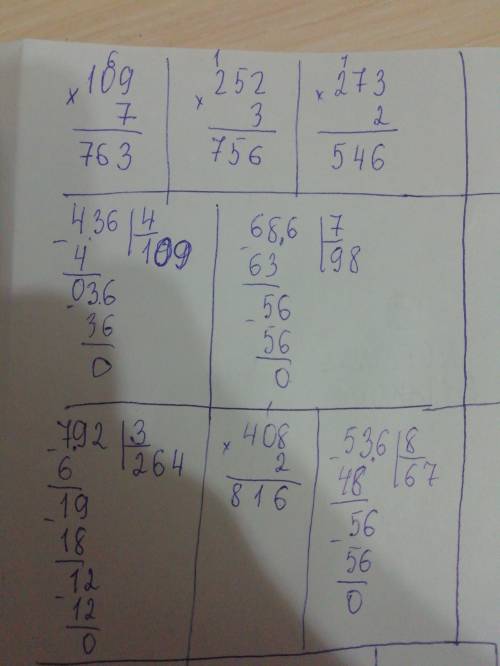 6
× 109
7
763
1
× 252
3
756
1
× 273
2
546
- 436 | 4
4 | 109
036
- 36
0
- 686 | 7
63 | 98
- 56
56
0
- 792 | 3
6 | 264
- 19
18
- 12
12
0
1
× 408
2
816
- 536 | 8
48 | 67
- 56
56
0